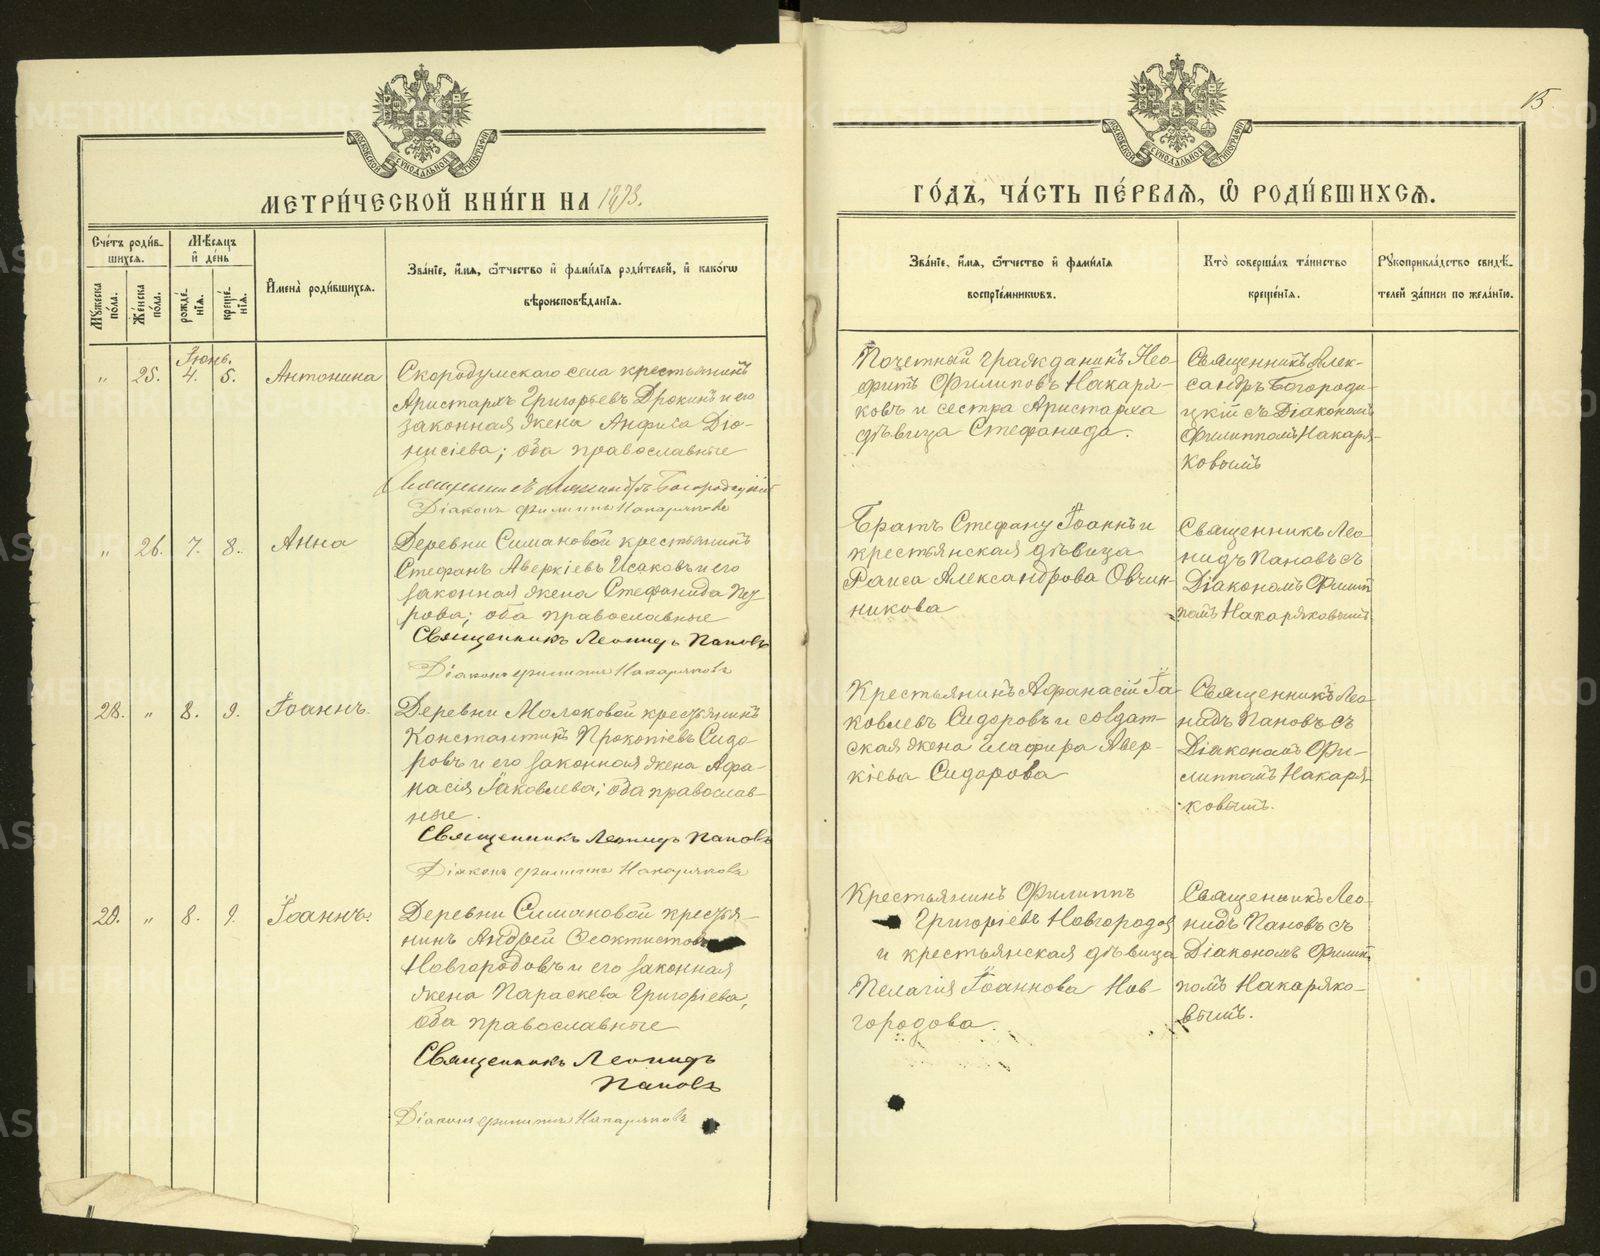 15
МЕТРИ́ЧЕСКОЙ КНИ́ГИ НА 1893.
ГО́ДЪ, ЧА́СТЬ ПЕ́РВАЯ, Ѽ РОДИ́ВШИХСЯ.
Сче́тъ роди́в-
шихся.
Мѣ́сяцъ
и҆ де́нь
Мꙋ́жеска по́ла.
Же́нска по́ла.
рожде́-
нїѧ.
креще́-
нїѧ.
И҆мена̀ роди́вшихся.
Зва́нїе, и҆́мя, ѻ҆́тчество и҆ фами́лїя роди́телей, и҆ како́гѡ
вѣроисповѣ́данїя.
Зва́нїе, и҆́мя, ѻ҆́тчество и҆ фами́лїя
воспрїе́мникѡвъ.
Кто̀ соверша́лъ та́инство
креще́нїя.
Рꙋкоприкла́дство свидѣ́-
телей за́писи по жела́нїю.
Іюнь.
" 25. 4. 5. Антонина
Скородумскаго села крестьянинъ
Аристархъ Григорьевъ Дрокинъ и его
законная жена Анфиса Діо-
нисіева; оба православные
Священникъ Александръ Богородицкій
Діаконъ Филиппъ Накаряковъ
Почетный гражданинъ Нео-
фитъ Филиповъ Накаря-
ковъ и сестра Аристарха
дѣвица Стефанида.
Священникъ Алек-
сандръ Богороди-
цкій съ Діакономъ
Филиппомъ Накаря-
ковымъ
" 26. 7. 8. Анна
Деревни Симановой крестьянинъ
Стефанъ Аверкіевъ Исаковъ и его
законная жена Стефанида
рова; оба православные
Священникъ Леонидъ Пановъ
Діаконъ Филиппъ Накаряковъ
Братъ Стефану Іоаннъ и
крестьянская дѣвица
Раиса Александрова Овчин-
никова
Священникъ Лео-
нидъ Пановъ съ
Діакономъ Филип-
помъ Накаряковымъ
28. " 8. 9. Іоаннъ
Деревни Молоковой крестьянинъ
Константинъ Прокопіевъ Сидо-
ровъ и его законная жена Афа-
насія Іаковлева; оба православ-
ные.
Священникъ Леонидъ Пановъ
Діаконъ Филиппъ Накаряковъ
Крестьянинъ Афанасій Іа-
ковлевъ Сидоровъ и солдат-
ская жена Глафира Авер-
кіева Сидорова
Священникъ Лео-
нидъ Пановъ съ
Діакономъ Фи-
липпомъ Накаря-
ковымъ.
29. " 8. 9. Іоаннъ.
Деревни Симановой крестья-
нинъ Андрей Ѳеоктистовъ
Новгородовъ и его законная
жена Параскева Григоріева,
оба православные
Священникъ Леонидъ
Пановъ
Діаконъ Филиппъ Накаряковъ
Крестьянинъ Филиппъ
Григоріевъ Новгородов
и крестьянская дѣвица
Пелагия Іоаннова Нов-
городова.
Священникъ Лео-
нидъ Пановъ съ
Діакономъ Филип-
помъ Накаряко-
вымъ.